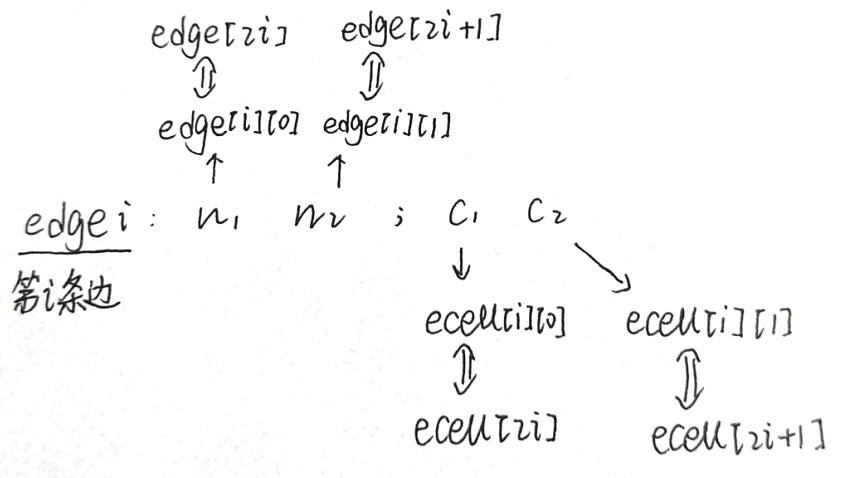 edge[2i] edge[2i+1]
⇕ ⇕
edge[i][0] edge[i][1]
↑ ↑
edge i : n₁ n₂ ; c₁ c₂
↓ ↘
第i条边
ecell[i][0] ecell[i][1]
⇕ ⇕
ecell[2i] ecell[2i+1]